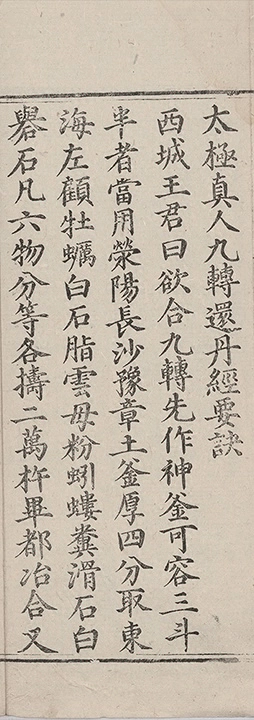 太極真人九轉還丹經要訣
西城王君曰欲合九轉先作神釜可容三斗
半者當用滎陽長沙豫章土釜厚四分取東
海左顧牡蠣白石脂雲母粉蚓螻糞滑石白
礜石凡六物分等各擣二萬杵畢都冶合叉